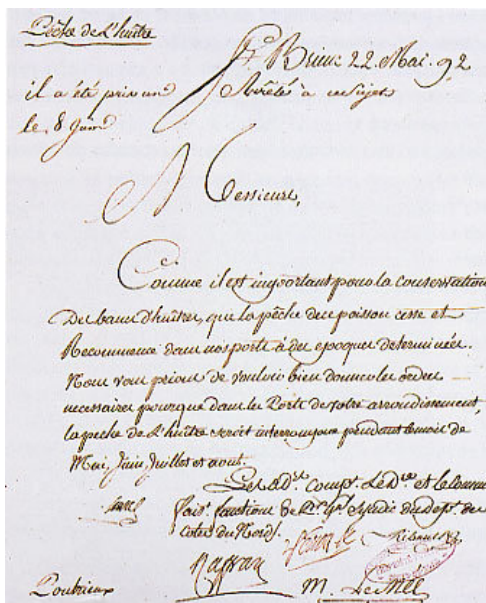 Pêche de L'huitre
St Brieuc 22. Mai. 92
il a été pris un Arrêté à ce Sujet
le 8 Juin
Messieurs,
Comme il est important pour la conservation
Des bancs d'huitres, que la pêche de ce poisson cesse et
Recommence dans nos ports à des epoques determinées.
Nous vous prions de vouloir bien donner les ordres
necessaires pour que dans les Ports de votre arrondissement,
la peche de L'huitre soit interrompue pendant le mois de
Mai, Juin, Juillet et aout.
Les ad. comp. Le D. et le
fais. fonctions de P. g. Syndic du dep. des
Cotes du Nord,
Pontrieux
M. Le Mée